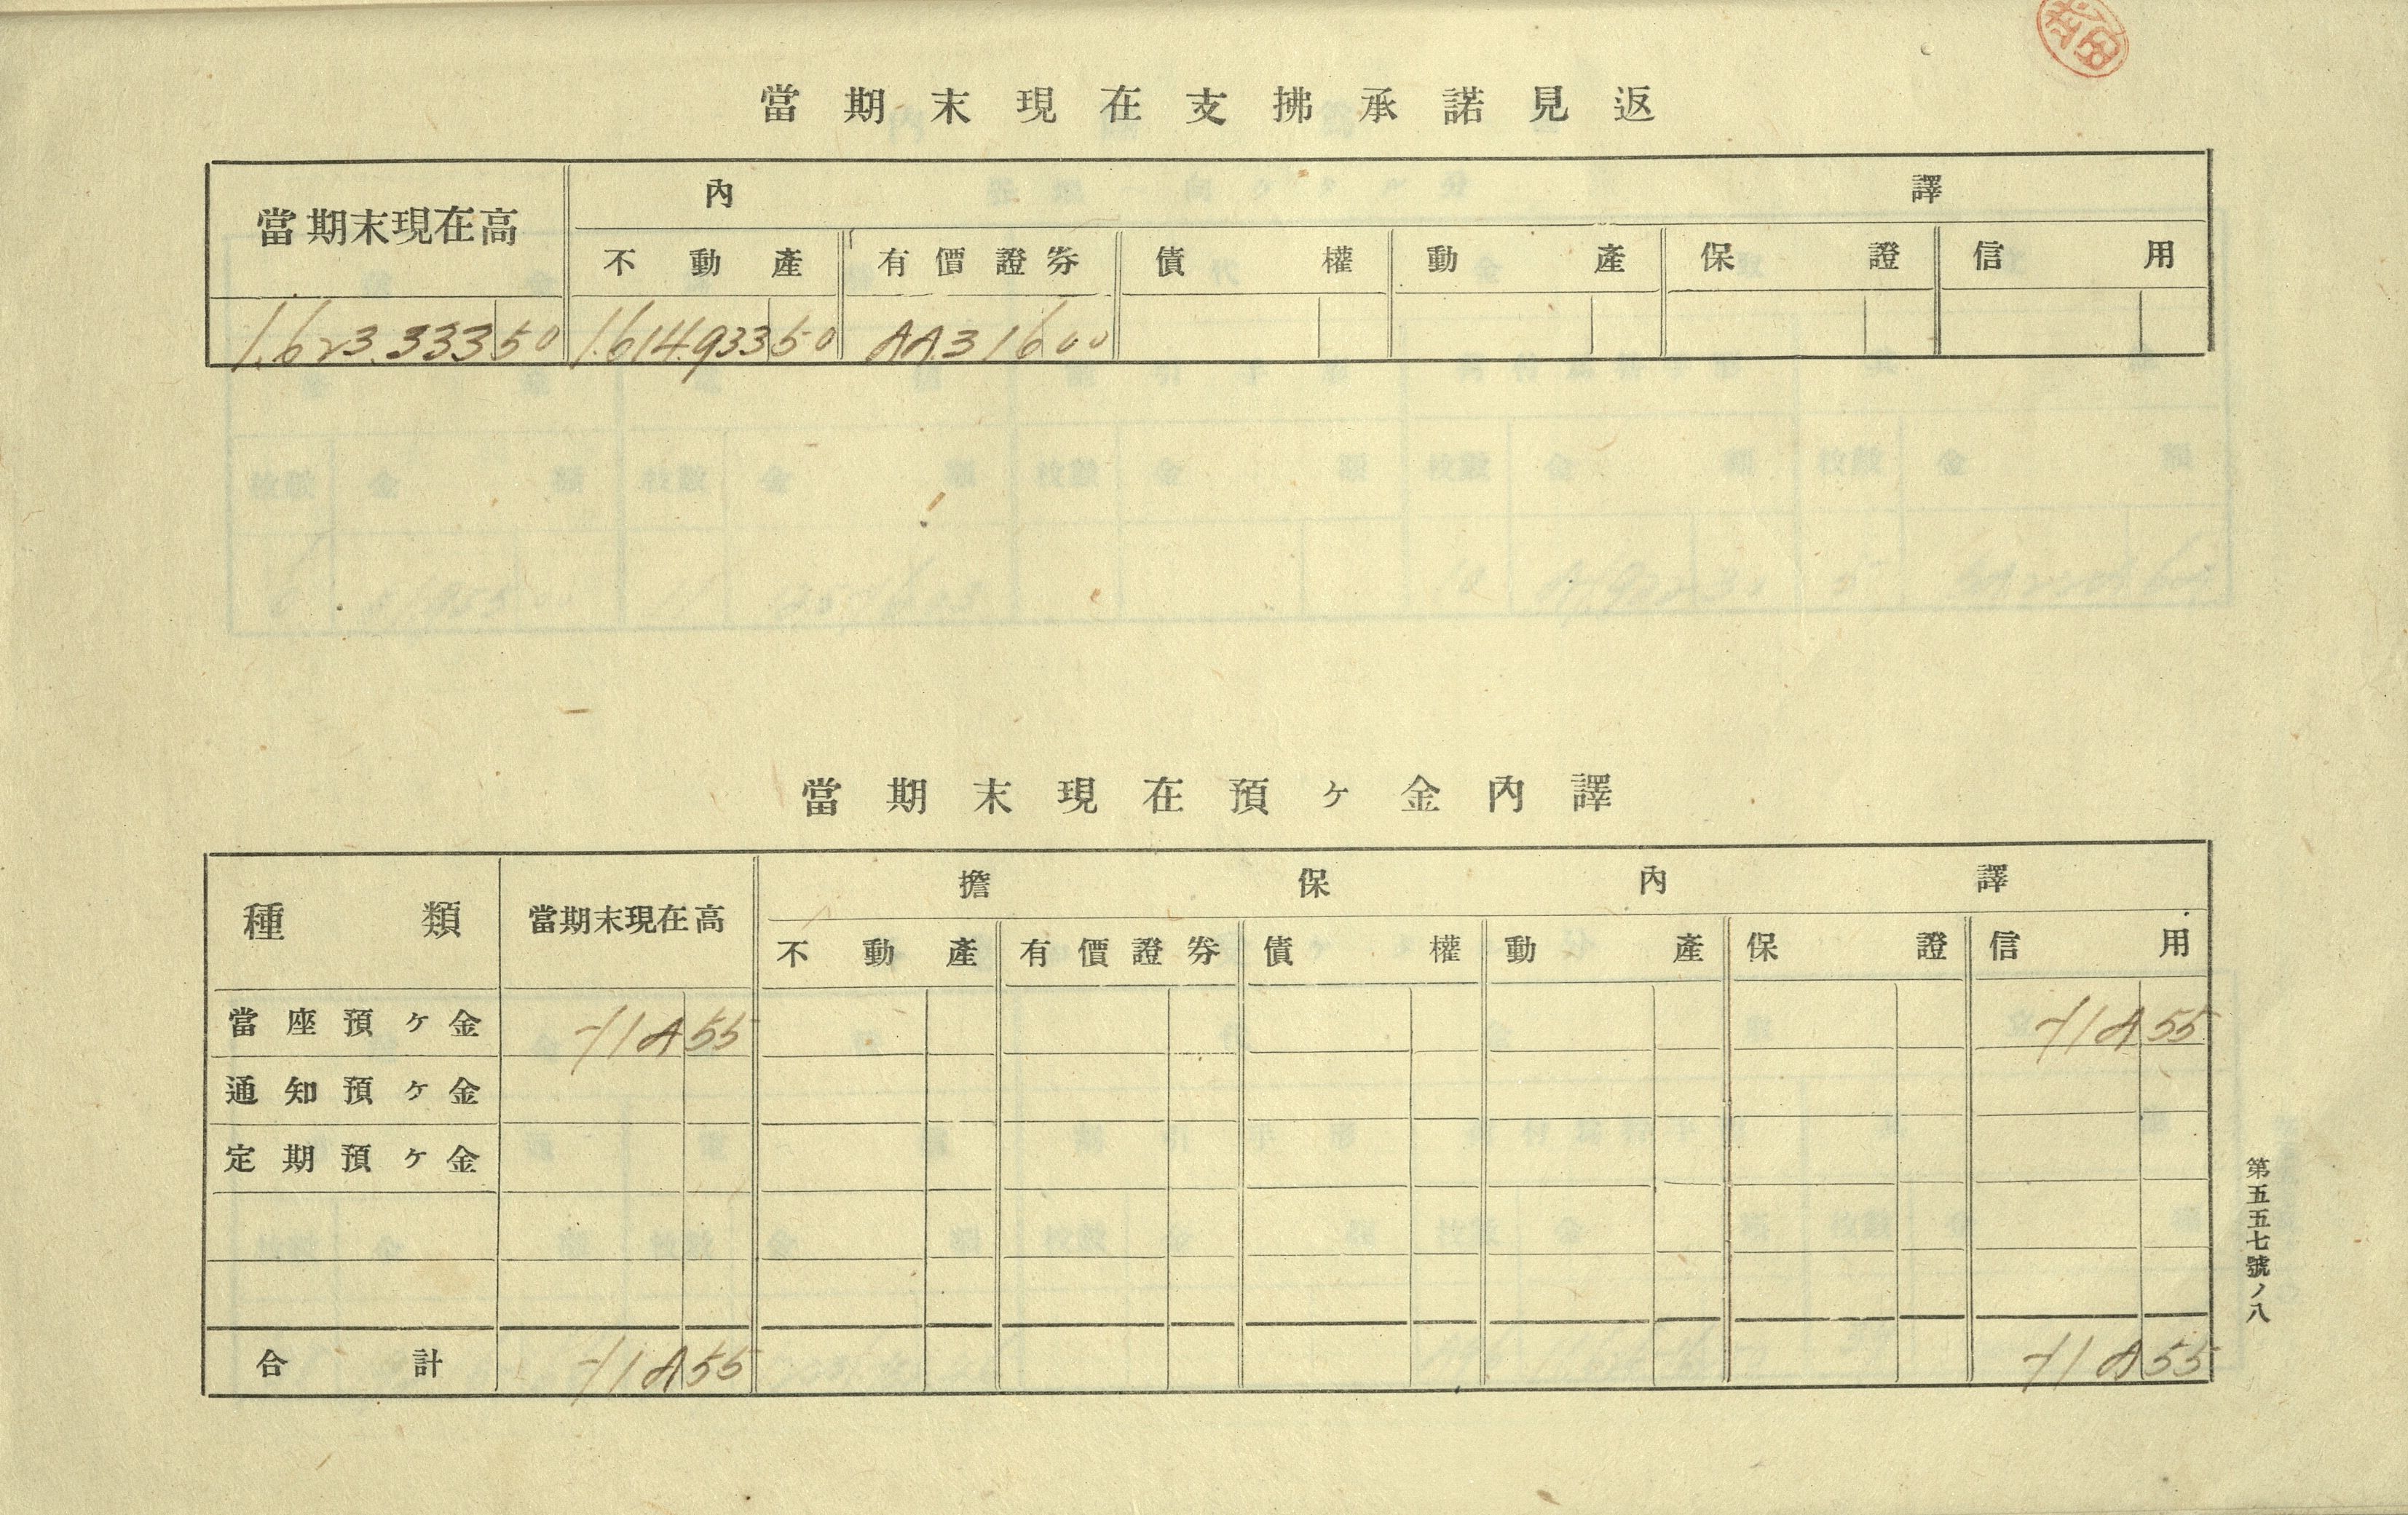 當期末現在支拂承諾見返
當期末現在高 內譯
不動產 有價證券 債權 動產 保證 信用
1.623.333 50 1.614.933 50
當期末現在預ヶ金內譯
種類 當期末現在高 擔保內譯
不動產 有價證券 債權 動產 保證 信用
當座預ヶ金
通知預ヶ金
定期預ヶ金
合計
第五五七號ノ八